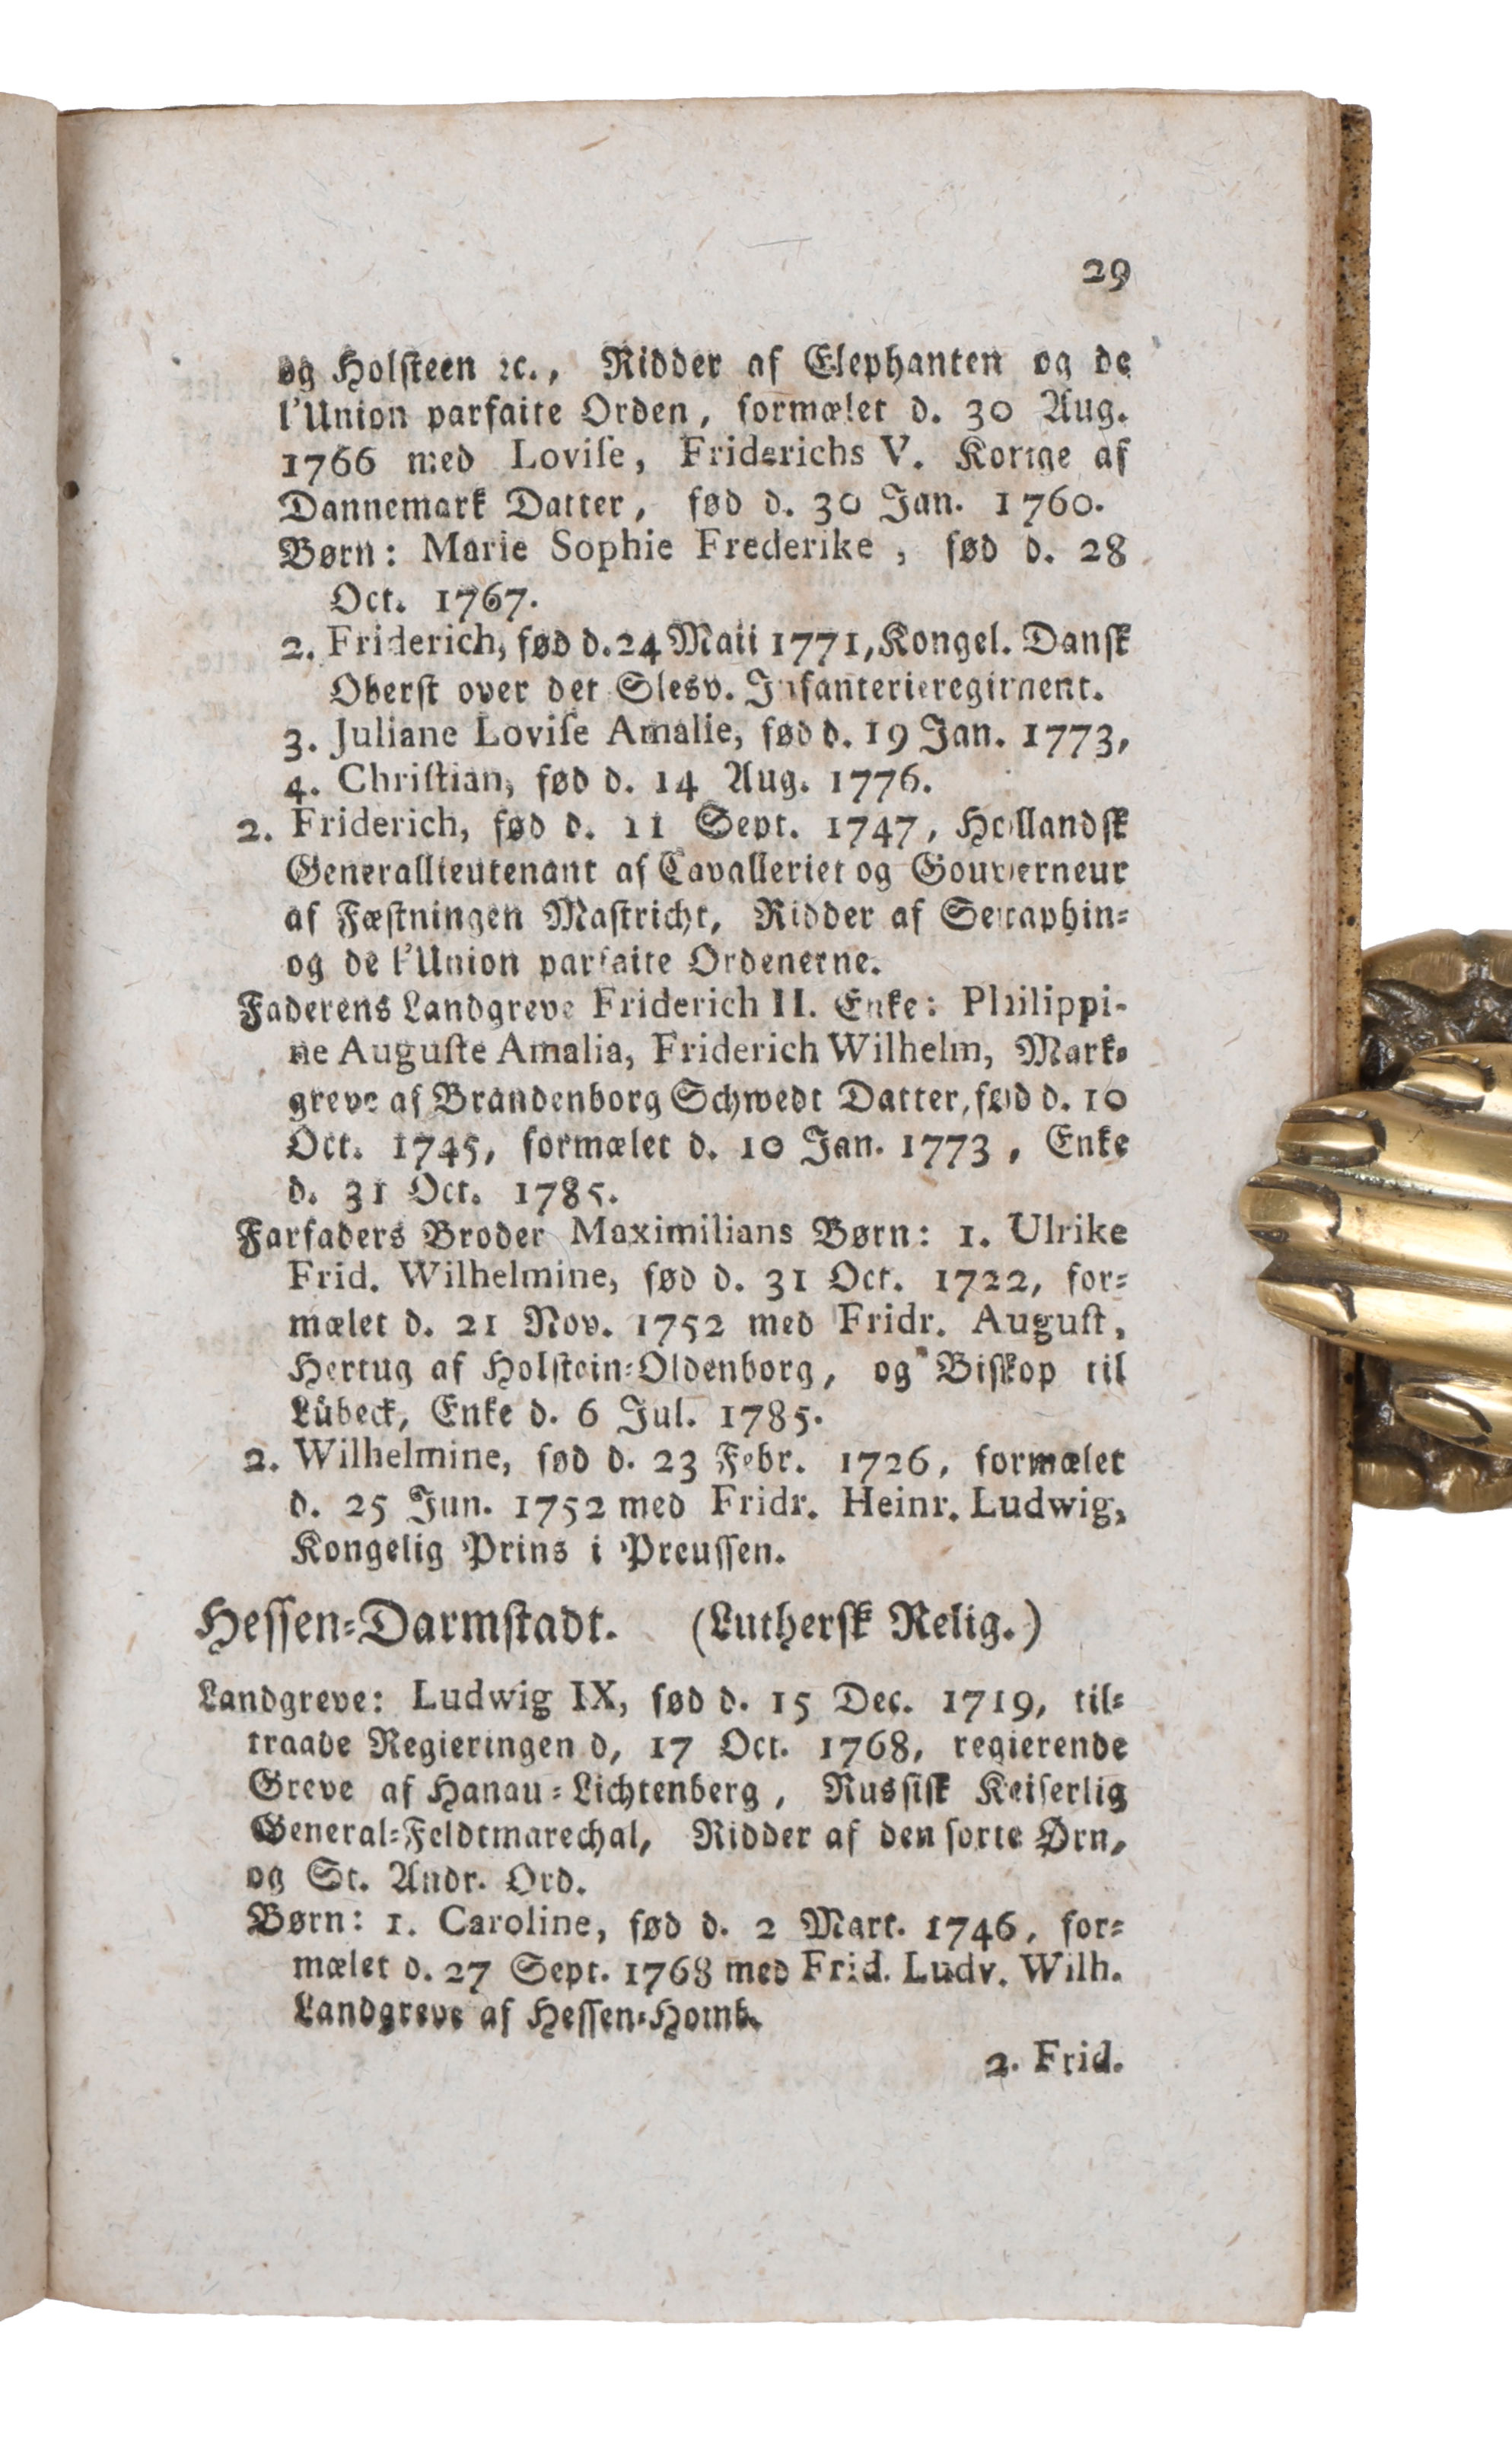 29
og Holsteen ꝛc., Ridder af Elephanten og de
l'Union parfaite Orden, formælet d. 30 Aug.
1766 med Loviſe, Friderichs V. Konge af
Dannemark Datter, fød d. 30 Jan. 1760.
Børn: Marie Sophie Frederike, fød d. 28
Oct. 1767.
2. Friderich, fød d. 24 Maii 1771, Kongel. Danſk
Oberſt over det Slesv. Infanterieregiment.
3. Juliane Loviſe Amalie, fød d. 19 Jan. 1773,
4. Chriſtian, fød d. 14 Aug. 1776.
2. Friderich, fød d. 11 Sept. 1747, Hollandſk
Generallieutenant af Cavalleriet og Gouverneur
af Fæſtningen Maſtricht, Ridder af Seraphin-
og de l'Union parfaite Ordenerne.
Faderens Landgreve Friderich II. Enke: Philippi-
ne Auguſte Amalia, Friderich Wilhelm, Mark-
greve af Brandenborg Schwedt Datter, fød d. 10
Oct. 1745, formælet d. 10 Jan. 1773, Enke
d. 31 Oct. 1785.
Farfaders Broder Maximilians Børn: 1. Ulrike
Frid. Wilhelmine, fød d. 31 Oct. 1722, for-
mælet d. 21 Nov. 1752 med Fridr. Auguſt,
Hertug af Holſtein-Oldenborg, og Biſkop til
Lübeck, Enke d. 6 Jul. 1785.
2. Wilhelmine, fød d. 23 Febr. 1726, formælet
d. 25 Jun. 1752 med Fridr. Heinr. Ludwig,
Kongelig Prins i Preuſſen.
Heſſen-Darmſtadt. (Lutherſk Relig.)
Landgreve: Ludwig IX, fød d. 15 Dec. 1719, til-
traade Regieringen d, 17 Oct. 1768, regierende
Greve af Hanau-Lichtenberg, Rusſiſk Keiſerlig
General-Feldtmarechal, Ridder af den ſorte Ørn,
og St. Andr. Ord.
Børn: 1. Caroline, fød d. 2 Mart. 1746, for-
mælet d. 27 Sept. 1768 med Frid. Ludv. Wilh.
Landgreve af Heſſen-Homb.
2. Frid.